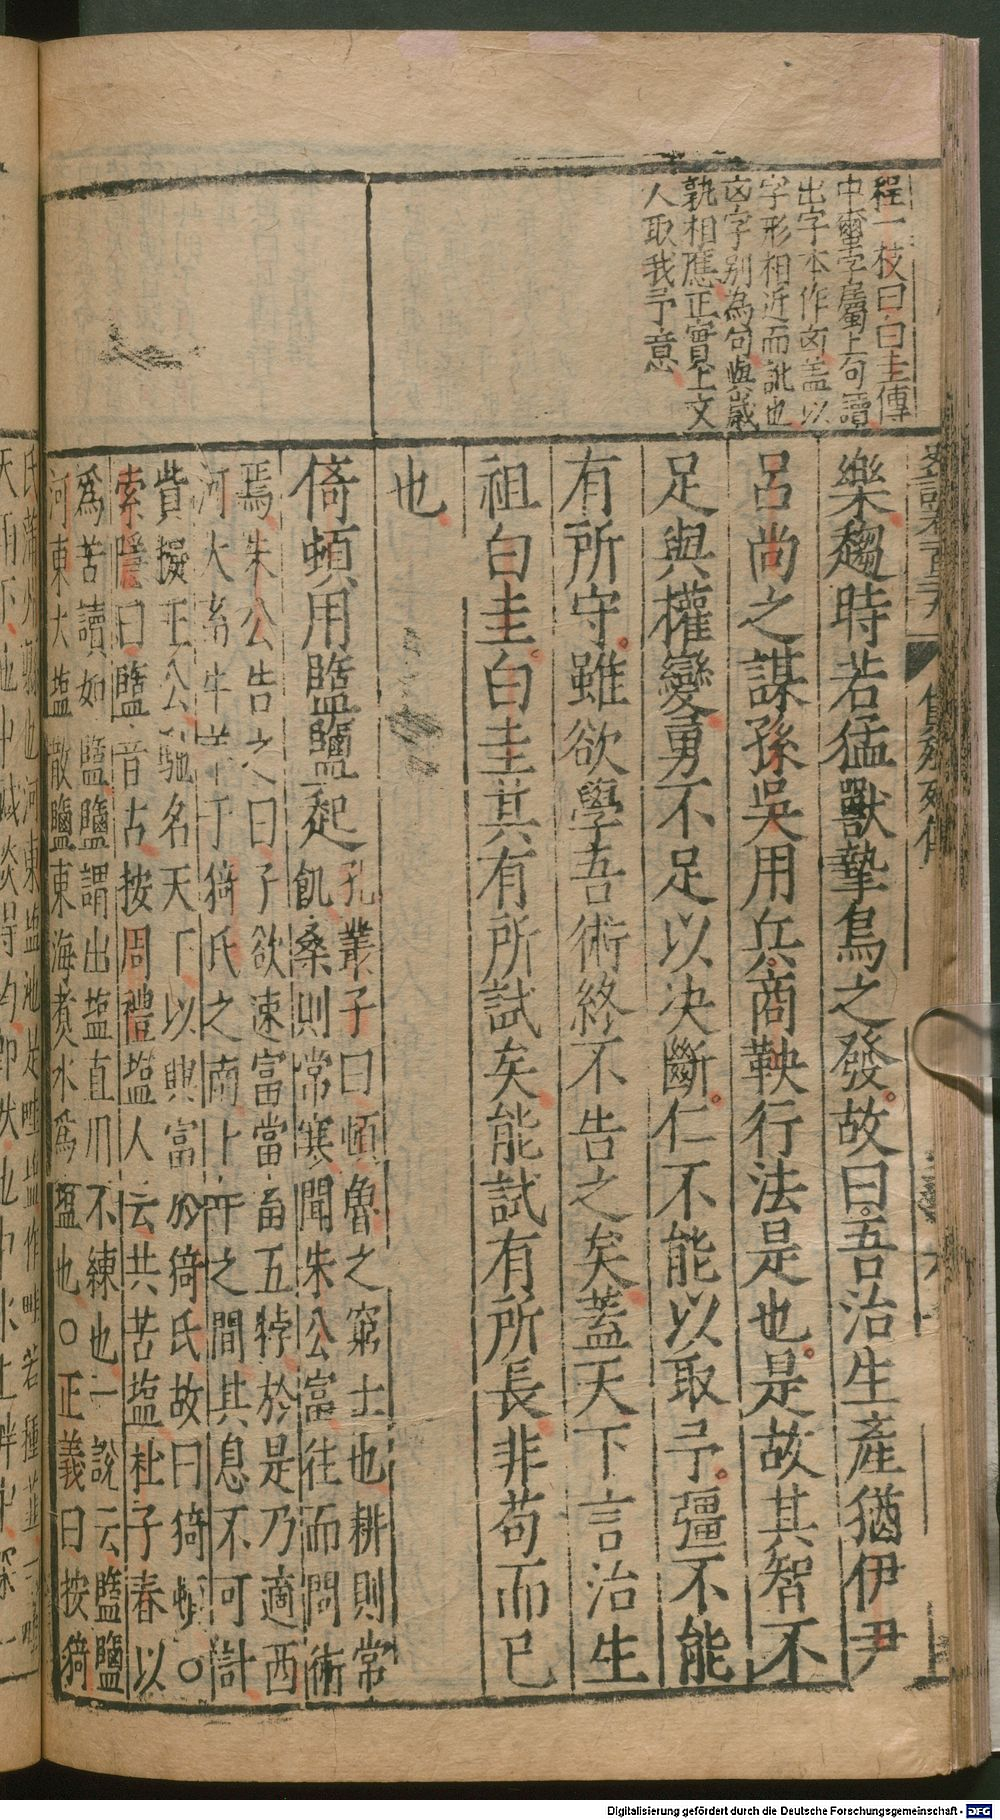 程一枝曰白圭傳
中蠻字屬上句讀
出字本作㐫盖以
字形相近而訛也
㐫字别為句與歲
孰相應正實上文
人取我予意
樂趨時若猛獸摯鳥之發故曰吾治生產猶伊尹
呂尚之謀孫吳用兵商鞅行法是也是故其智不
足與權變勇不足以决斷仁不能以取予彊不能
有所守雖欲學吾術終不告之矣蓋天下言治生
祖白圭白圭其有所試矣能試有所長非苟而已
也
倚頓用盬鹽起
孔叢子曰頓魯之窮士也耕則常
飢桑則常寒聞朱公富往而問術
焉朱公告之曰子欲速富當畜五牸於是乃適西
河大畜牛羊于猗氏之南十年之間其息不可計
貲擬王公馳名天下以興富於猗氏故曰猗頓○
索隱曰盬音古按周禮塩人云共苦塩杜子春以
為苦讀如盬鹽謂出塩直用不練也一說云盬鹽
河東大塩散鹽東海煑水為塩也○正義曰按猗
Digitalisierung gefördert durch die Deutsche Forschungsgemeinschaft - DFG